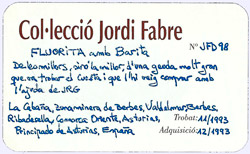 Col·lecció Jordi Fabre
Nº JFD98
FLUORITA amb Barita
De les millors, sinó la millor, d'una geoda molt gran
que va trobar el Cuesta i que l'hi vaig comprar amb
l'ajuda de JRG
La Cabaña, zona minera de Berbes, Valdelmar, Berbes,
Ribadesella, Comarca Oriente, Asturias,
Principado de Asturias, España
Trobat: 11/1993
Adquisició: 12/1993